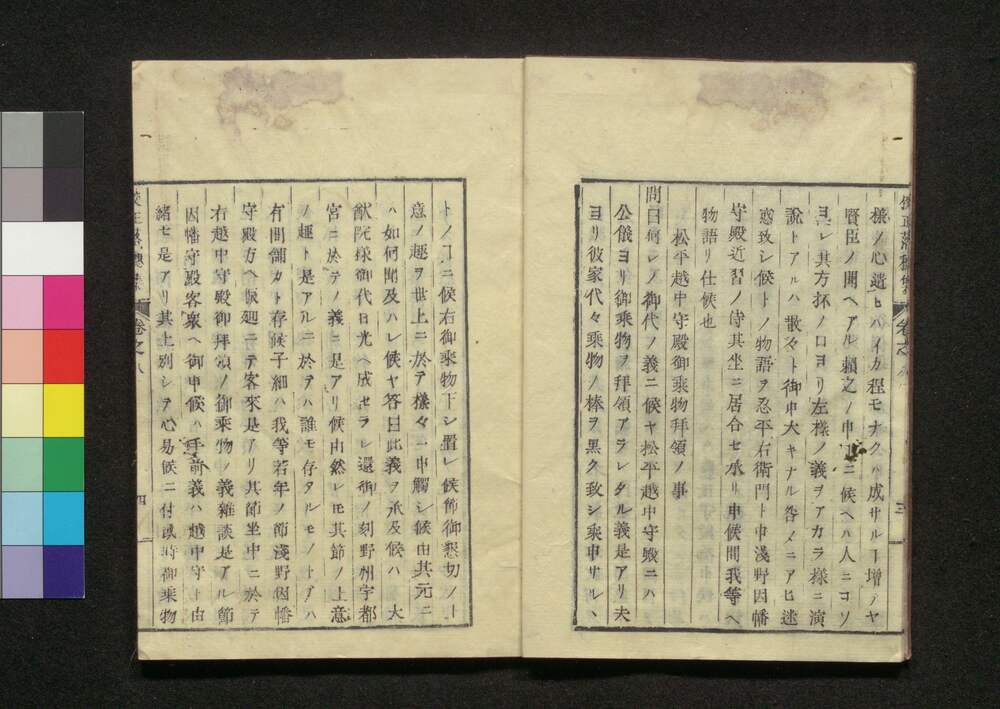 様ノ心遣ヒハイカ程モナクハ成サルー増テヤ
賢臣ノ聞ヘアル頼之ノ申ニ候ヘハ人ニコソ
ヨレ其方抔ノ口ヨリ左様ノ義ヲアカラ様ニ演
説トアルハ散々ト御申大キナル咎メニアヒ迷
惑致シ候トノ物語ヲ忍平右衛門ト申浅野因幡
守殿近習ノ侍其坐ニ居合セ承リ申候間我等ヘ
物語リ仕候也
松平越中守殿御乗物拝領ノ事
問曰何レノ御代ノ義ニ候ヤ松平越中守殿ニハ
公儀ヨリ御乗物ヲ拝領アラレタル義是アリ夫
ヨリ彼家代々乗物ノ棒ヲ黒ク致シ乗申サル丶
校正落穂集 巻之八 三
トノヿニ候右御乗物下シ置レ候節御懇切ノ上
意ノ趣ヲ世上ニ於テ様々ニ申觸シ候由其元ニ
ハ如何聞及ハレ候ヤ答曰此義ヲ承及候ハ 大
猷院様御代日光ヘ成セラレ還御ノ刻野州宇都
宮ニ於テノ義ニ是アリ候由然レモ其節ノ上意
ノ趣ト是アルニ於テハ誰モ存タルモノトテハ
有間鋪カト存候子細ハ我等若年ノ節浅野因幡
守殿方ヘ振廻ニテ客來是アリ其節坐中ニ於テ
右越中守殿御拝領ノ御乗物ノ義雑談是アル節
因幡守殿客衆ヘ御申候ハ手前義ハ越中守ト由
緒モ是アリ其上別シテ心易候ニ付或時御乗物
校正落穂集 巻之八 四